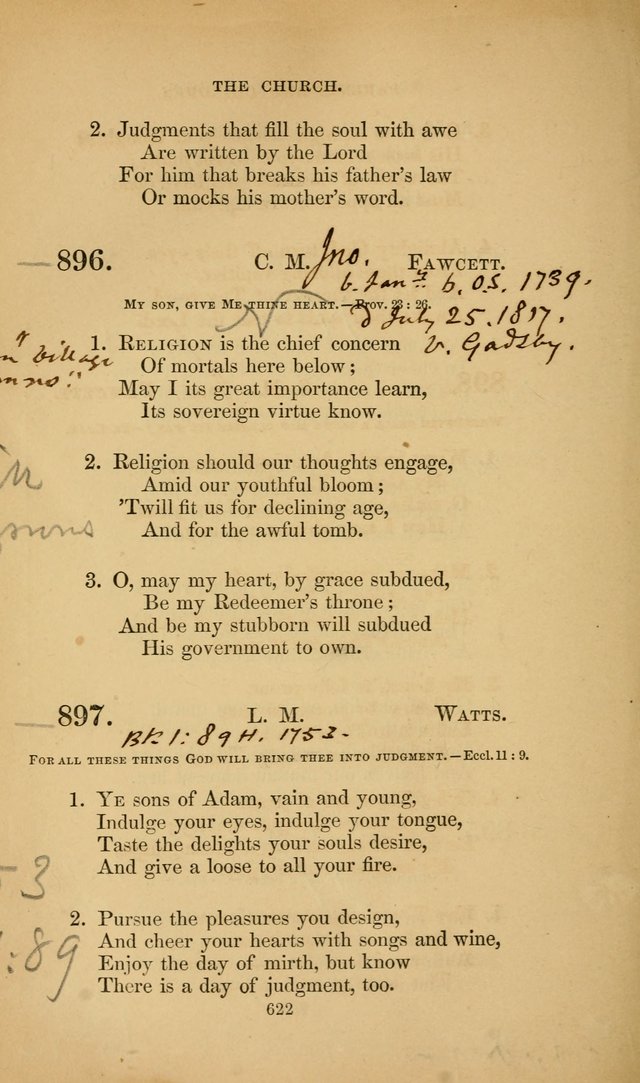 THE CHURCH.
2. Judgments that fill the soul with awe
Are written by the Lord
For him that breaks his father's law
Or mocks his mother's word.
896. C. M. Jno. FAWCETT.
b. Jany. 6, O.S. 1739.
MY SON, GIVE ME THINE HEART.—Prov. 23 : 26.
d July 25. 1817.
1. RELIGION is the chief concern
v. Gadsby.
Village
Of mortals here below;
May I its great importance learn,
Its sovereign virtue know.
2. Religion should our thoughts engage,
Amid our youthful bloom;
'Twill fit us for declining age,
And for the awful tomb.
3. O, may my heart, by grace subdued,
Be my Redeemer's throne;
And be my stubborn will subdued
His government to own.
897. L. M. WATTS.
Bk 1: 89 H. 1753-
FOR ALL THESE THINGS GOD WILL BRING THEE INTO JUDGMENT.—Eccl. 11 : 9.
1. YE sons of Adam, vain and young,
Indulge your eyes, indulge your tongue,
Taste the delights your souls desire,
And give a loose to all your fire.
3
2. Pursue the pleasures you design,
And cheer your hearts with songs and wine,
:89
Enjoy the day of mirth, but know
There is a day of judgment, too.
622